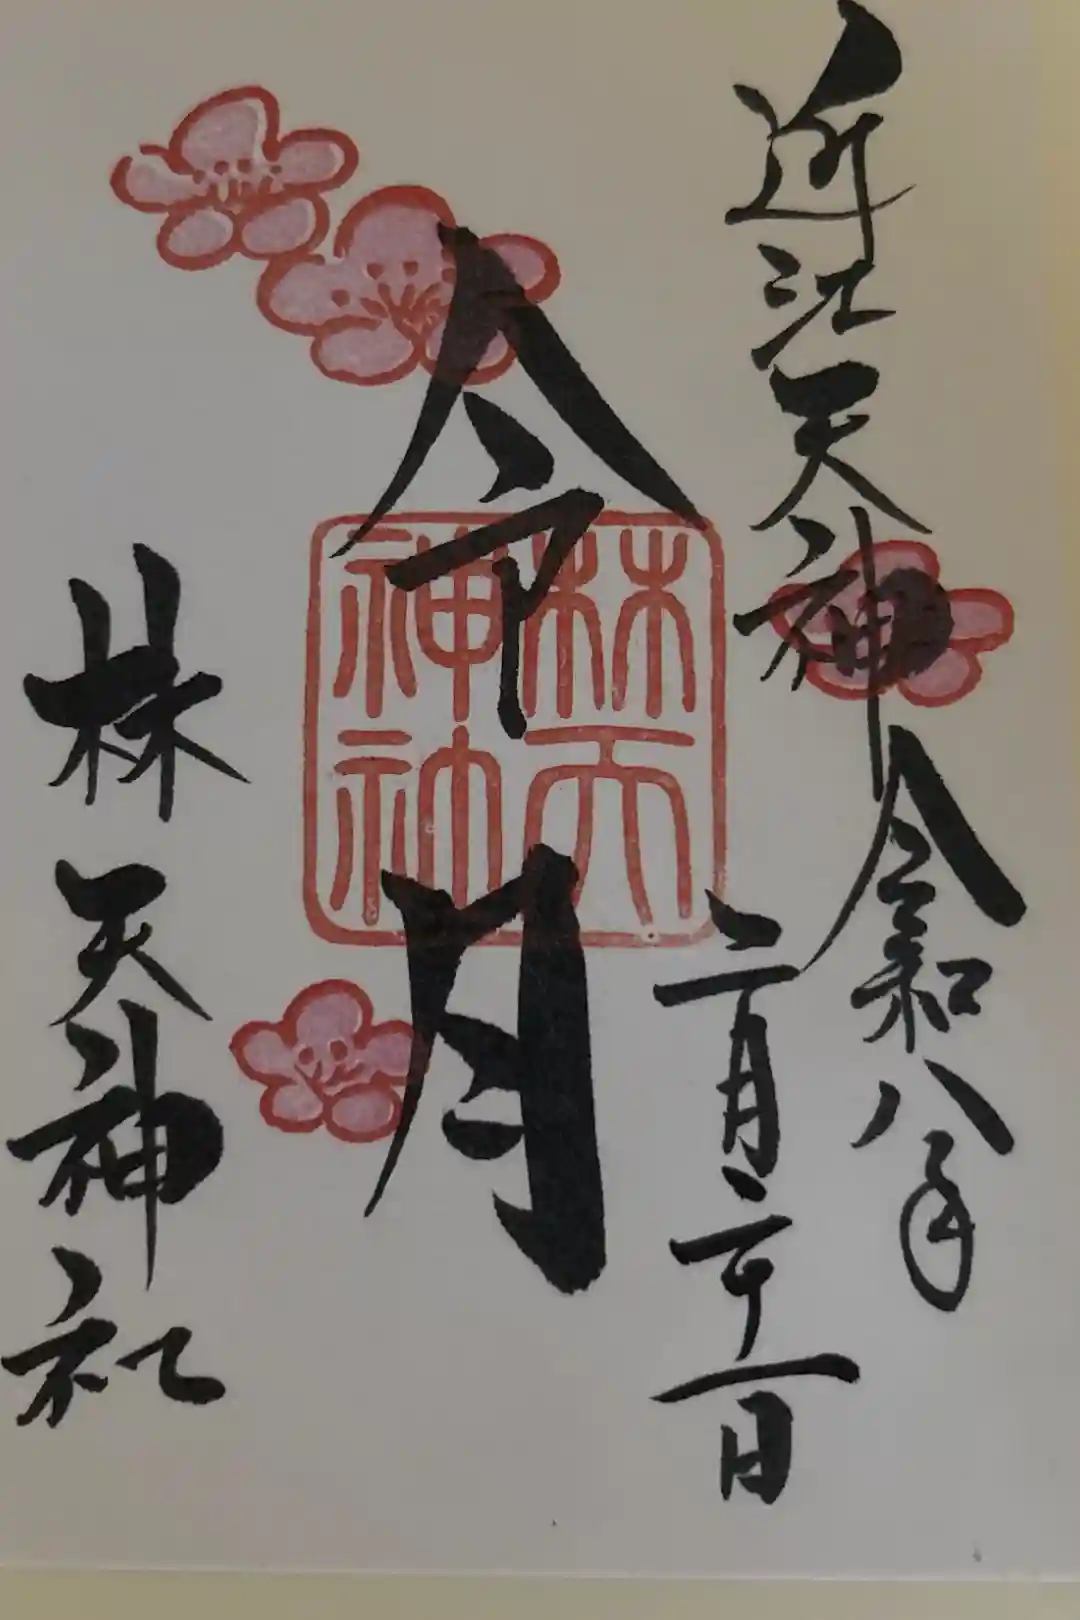 近江天神
令和八年
二月二十一日
令月
林天神社
林天神社